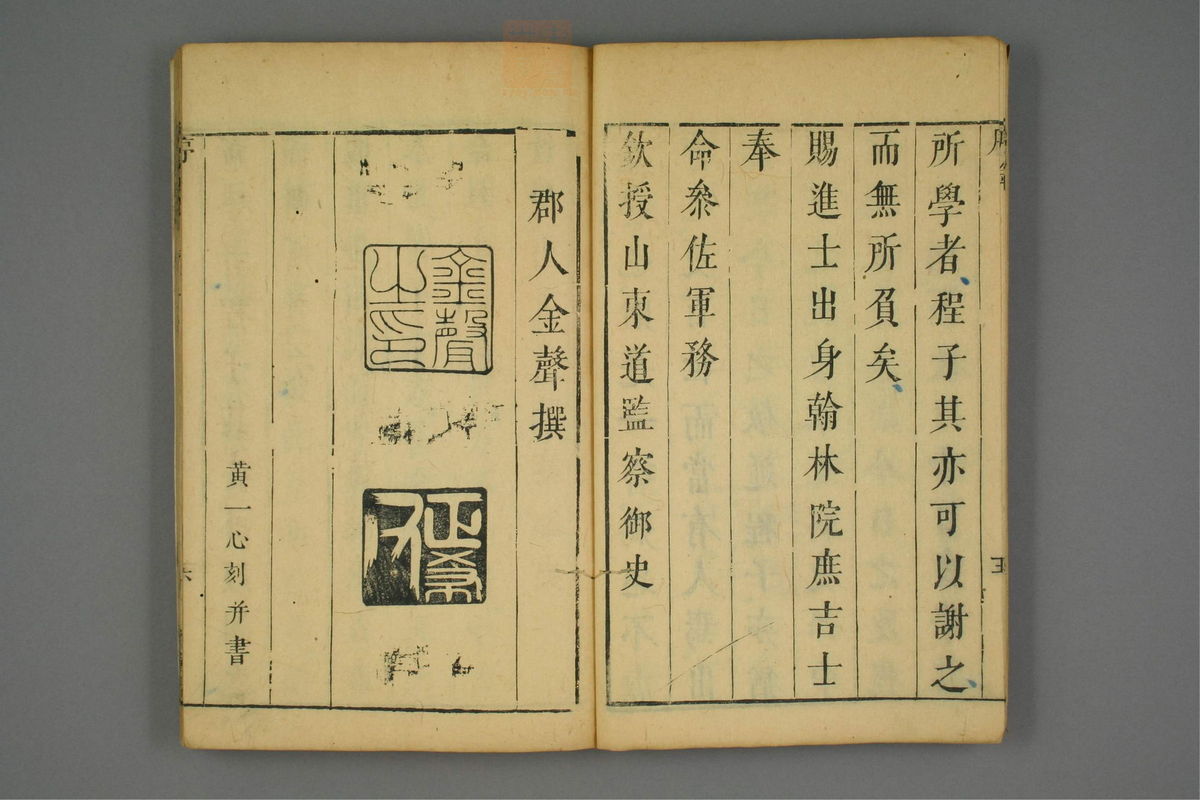 所學者程子其亦可以謝之
而無所負矣
賜進士出身翰林院庶吉士
奉
命叅佐軍務
欽授山東道監察御史
郡人金聲撰
金聲之印
黃一心刻并書
序
五
六